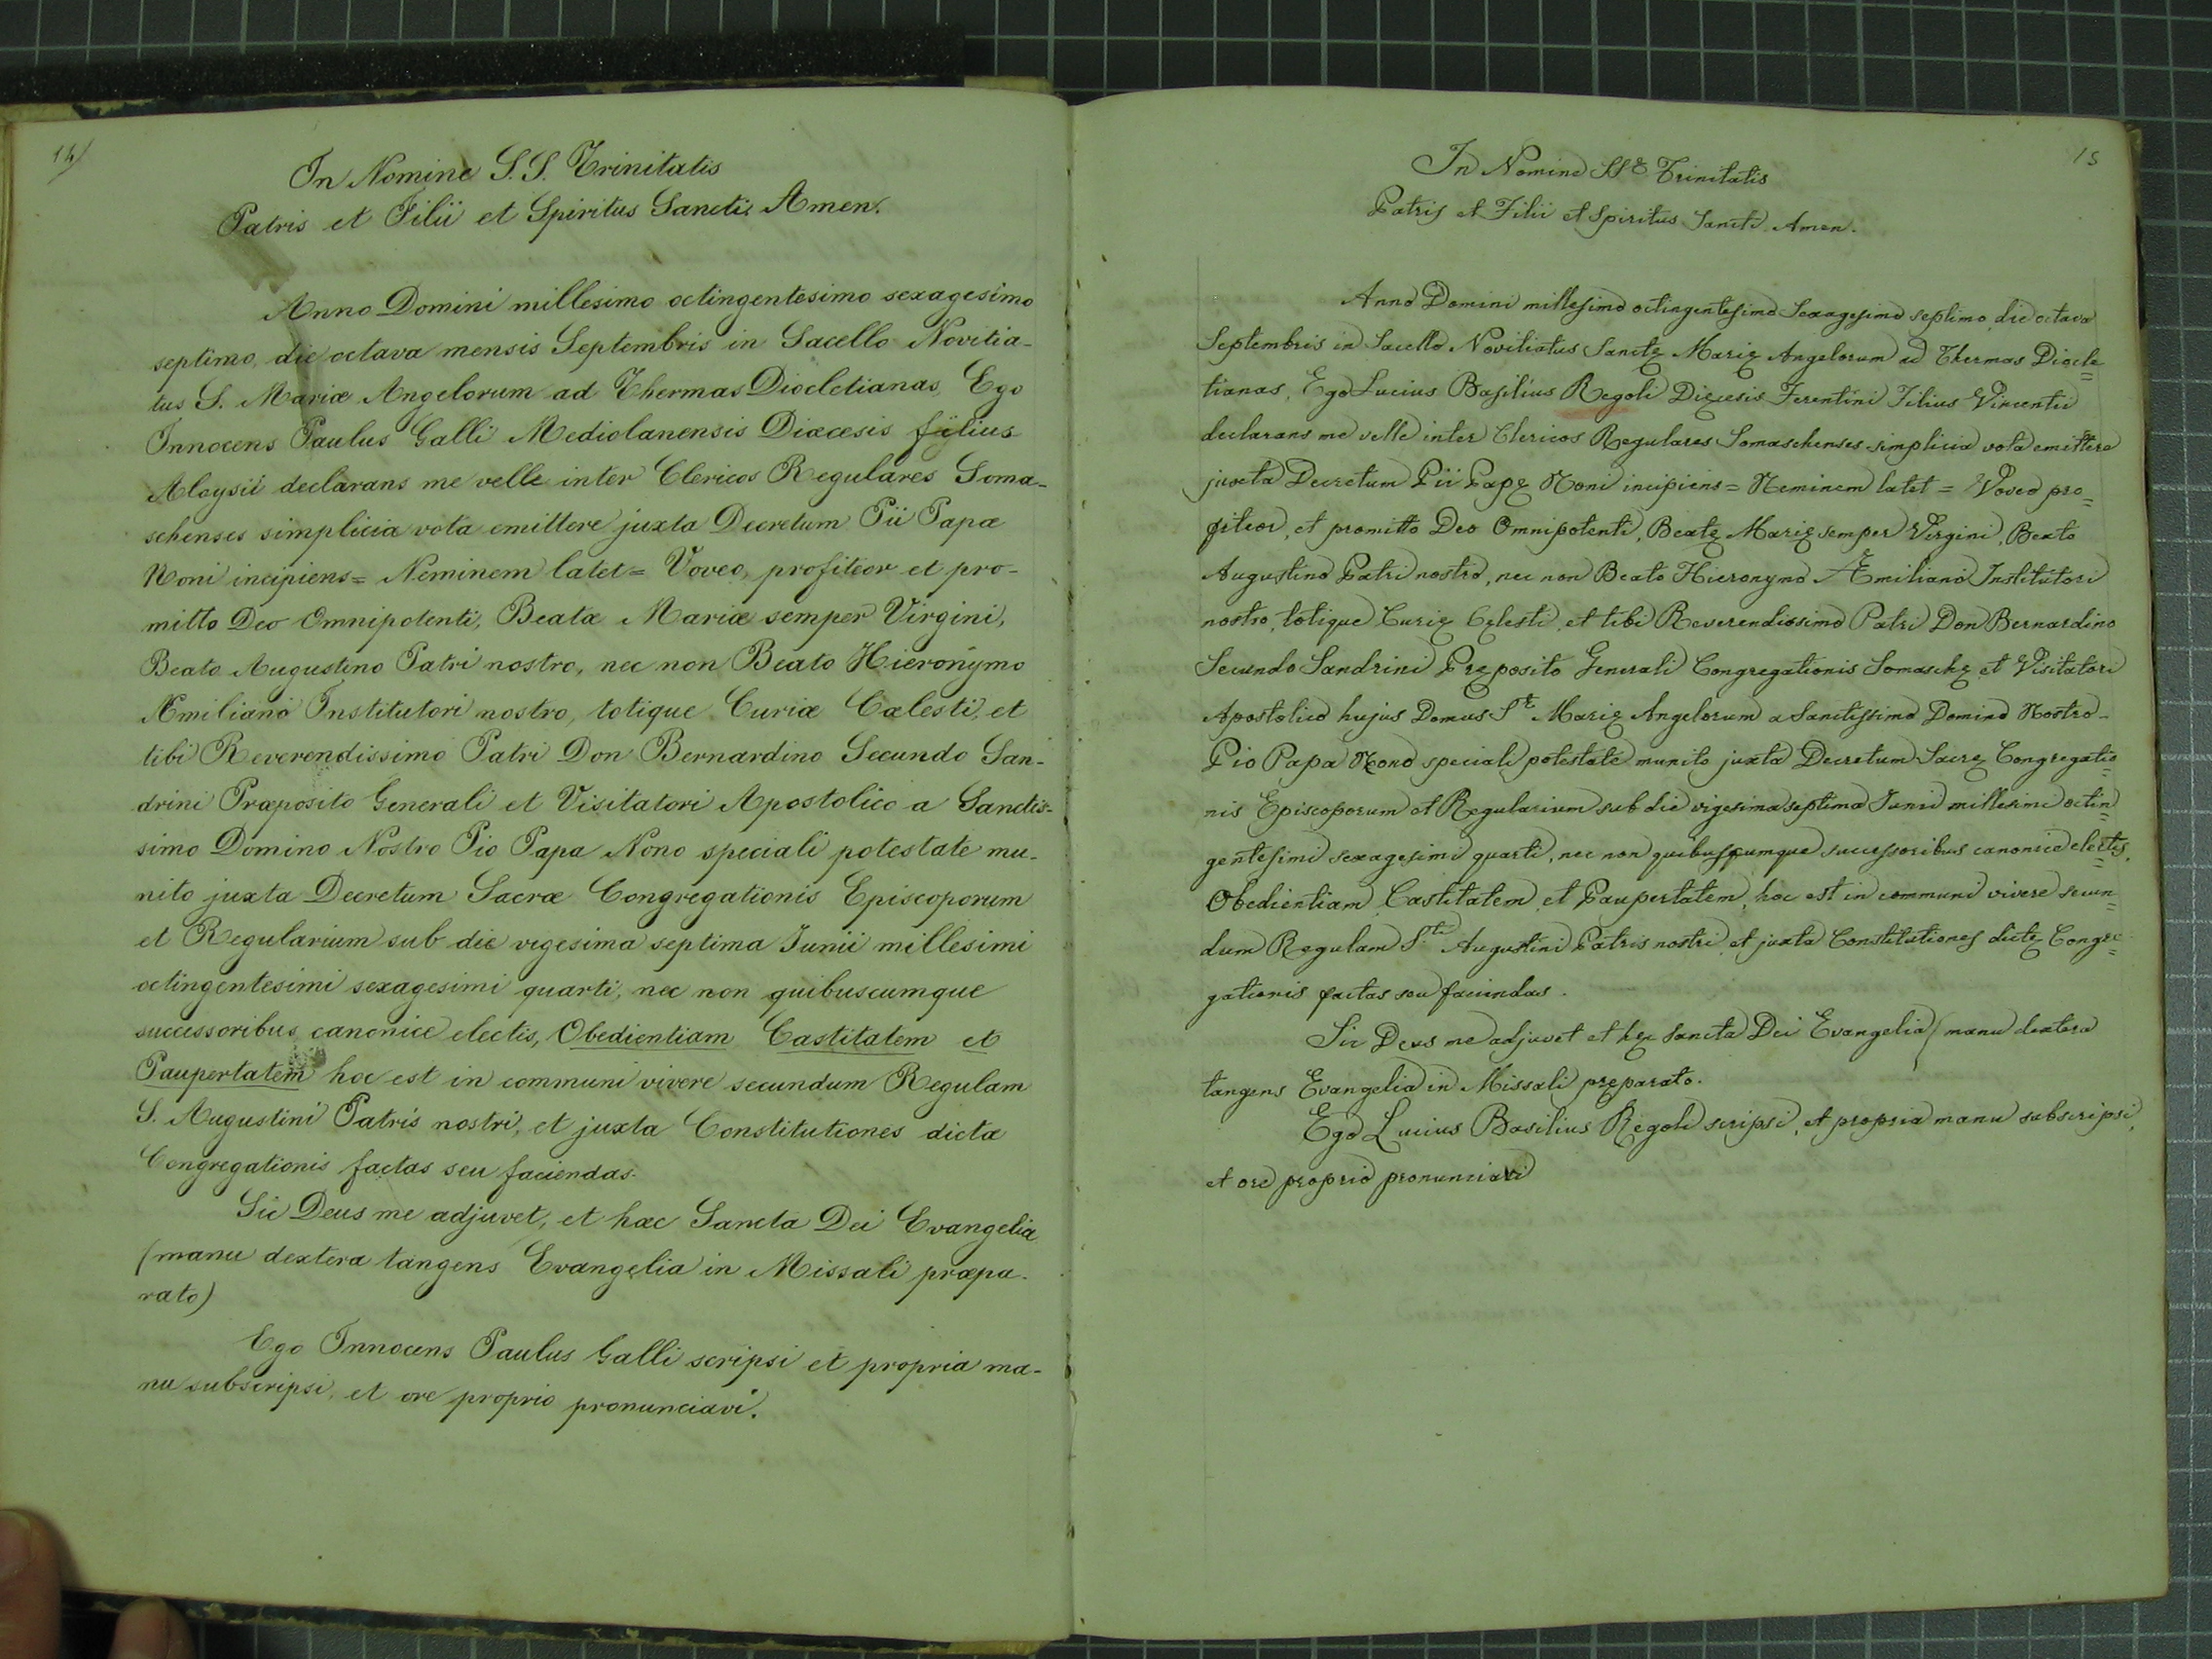 14)
In Nomine S.S. Trinitatis
Patris et Filii et Spiritus Sancti, Amen.
Anno Domini millesimo octingentesimo sexagesimo
septimo, die octava mensis Septembris in Sacello Novitia-
tus S. Mariæ Angelorum ad Thermas Diocletianas, Ego
Innocens Paulus Galli Mediolanensis Diœcesis filius
Aloysii declarans me velle inter Clericos Regulares Soma-
schenses simplicia vota emittere juxta Decretum Pii Papæ
Noni incipiens = Neminem latet = Voveo, profiteor et pro-
mitto Deo Omnipotenti, Beatæ Mariæ semper Virgini,
Beato Augustino Patri nostro, nec non Beato Hieronymo
Æmiliano Institutori nostro, totique Curiæ Cælesti, et
tibi Reverendissimo Patri Don Bernardino Secundo San-
drini Præposito Generali et Visitatori Apostolico a Sanctis-
simo Domino Nostro Pio Papa Nono speciali potestate mu-
nito juxta Decretum Sacræ Congregationis Episcoporum
et Regularium sub die vigesima septima Junii millesimi
octingentesimi sexagesimi quarti, nec non quibuscumque
successoribus canonice electis, Obedientiam Castitatem et
Paupertatem hoc est in communi vivere secundum Regulam
S. Augustini Patris nostri, et juxta Constitutiones dictæ
Congregationis factas seu faciendas.
Sic Deus me adjuvet, et hæc Sancta Dei Evangelia
(manu dextera tangens Evangelia in Missali præpa-
rato)
Ego Innocens Paulus Galli scripsi et propria ma-
nu subscripsi, et ore proprio pronunciavi.
15
In Nomine SSę Trinitatis
Patris et Filii et Spiritus Sancti Amen.
Anno Domini millesimo octingentesimo sexagesimo septimo, die octava
Septembris in Sacello Novitiatus Sanctę Marię Angelorum ad Thermas Diocle=
tianas, Ego Lucius Basilius Regoli Dięcesis Ferentini Filius Vincentii
declarans me velle inter Clericos Regulares Somaschenses simplicia vota emittere
juxta Decretum Pii Papę Noni incipiens = Neminem latet = Voveo pro=
fiteor, et promitto Deo Omnipotenti, Beatę Marię semper Virgini, Beato
Augustino Patri nostro, nec non Beato Hieronymo Æmiliano Institutori
nostro, totique Curię Cęlesti, et tibi Reverendissimo Patri Don Bernardino
Secundo Sandrini Pręposito Generali Congregationis Somaschę et Visitatori
Apostolico hujus Domus Sę Marię Angelorum a Sanctissimo Domino Nostro
Pio Papa Nono speciali potestate munito juxta Decretum Sacrę Congregatio=
nis Episcoporum et Regularium sub die vigesima septima Junii millesimi octin=
gentesimi sexagesimi quarti, nec non quibuscumque successoribus canonice electis,
Obedientiam, Castitatem, et Paupertatem, hoc est in communi vivere secun=
dum Regulam Sti Augustini Patris nostri, et juxta Constitutiones dictę Congre=
gationis factas seu faciendas.
Sic Deus me adjuvet et hęc Sancta Dei Evangelia (manu dextera
tangens Evangelia in Missali pręparato.
Ego Lucius Basilius Regoli scripsi, et propria manu subscripsi,
et ore proprio pronunciavi